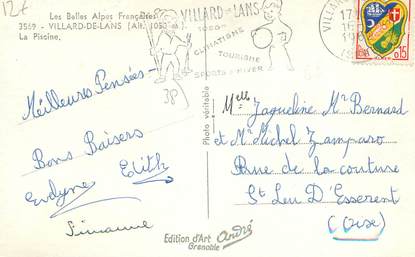 12€
Les Belles Alpes Françaises
3569 - VILLARD-DE-LANS (Alt. 1050 m.)
La Piscine.
VILLARD DE LANS
CLIMATISME
TOURISME
SPORTS D'HIVER
0,15
38
Meilleures Pensées -
Bons Baisers
Evelyne Edith
Simanne
Photo véritable
Melle Jaqueline Mr Bernard
et Mr Michel Zamparo
Rue de la couture
St Leu D'Esserent
(Oise)
Edition d'Art André
Grenoble